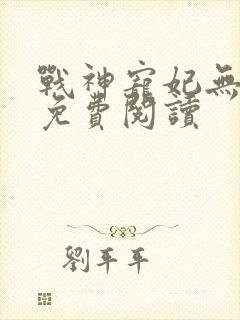 戰神寵妃無
免費閱讀
劉平平